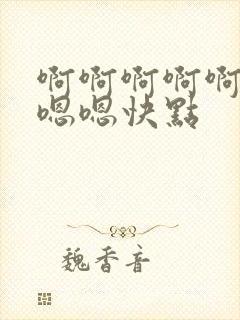 啊啊啊啊啊
嗯嗯快點
魏香音